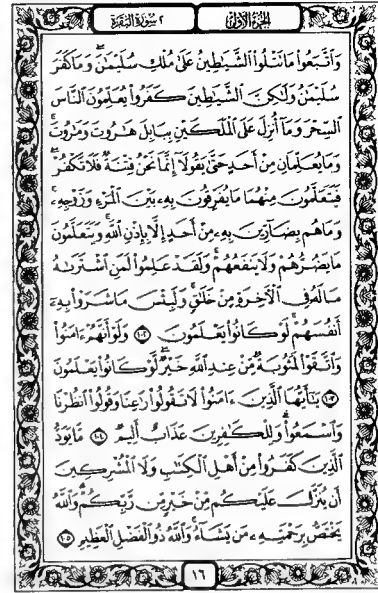 الجزء الأول
٢ سورة البقرة
وَاتَّبَعُوا۟ مَا تَتْلُوا۟ الشَّيَاطِينُ عَلَىٰ مُلْكِ سُلَيْمَانَ وَمَا كَفَرَ
سُلَيْمَانُ وَلَٰكِنَّ الشَّيَاطِينَ كَفَرُوا۟ يُعَلِّمُونَ النَّاسَ
السِّحْرَ وَمَا أُنزِلَ عَلَى الْمَلَكَيْنِ بِبَابِلَ هَٰرُوتَ وَمَٰرُوتَ
وَمَا يُعَلِّمَانِ مِنْ أَحَدٍ حَتَّىٰ يَقُولَا إِنَّمَا نَحْنُ فِتْنَةٌ فَلَا تَكْفُرْ
فَيَتَعَلَّمُونَ مِنْهُمَا مَا يُفَرِّقُونَ بِهِۦ بَيْنَ الْمَرْءِ وَزَوْجِهِۦ
وَمَا هُم بِضَارِّينَ بِهِۦ مِنْ أَحَدٍ إِلَّا بِإِذْنِ اللَّهِ وَيَتَعَلَّمُونَ
مَا يَضُرُّهُمْ وَلَا يَنفَعُهُمْ وَلَقَدْ عَلِمُوا۟ لَمَنِ اشْتَرَىٰهُ
مَا لَهُۥ فِي الْآخِرَةِ مِنْ خَلَٰقٍ وَلَبِئْسَ مَا شَرَوْا۟ بِهِۦٓ
أَنفُسَهُمْ لَوْ كَانُوا۟ يَعْلَمُونَ ١٠٢ وَلَوْ أَنَّهُمْ ءَامَنُوا۟
وَاتَّقَوْا۟ لَمَثُوبَةٌ مِّنْ عِندِ اللَّهِ خَيْرٌ لَّوْ كَانُوا۟ يَعْلَمُونَ
١٠٣ يَٰٓأَيُّهَا الَّذِينَ ءَامَنُوا۟ لَا تَقُولُوا۟ رَٰعِنَا وَقُولُوا۟ انظُرْنَا
وَاسْمَعُوا۟ وَلِلْكَٰفِرِينَ عَذَابٌ أَلِيمٌ ١٠٤ مَّا يَوَدُّ
الَّذِينَ كَفَرُوا۟ مِنْ أَهْلِ الْكِتَٰبِ وَلَا الْمُشْرِكِينَ
أَن يُنَزَّلَ عَلَيْكُم مِّنْ خَيْرٍ مِّن رَّبِّكُمْ وَاللَّهُ
يَخْتَصُّ بِرَحْمَتِهِۦ مَن يَشَآءُ وَاللَّهُ ذُو الْفَضْلِ الْعَظِيمِ ١٠٥
١٦